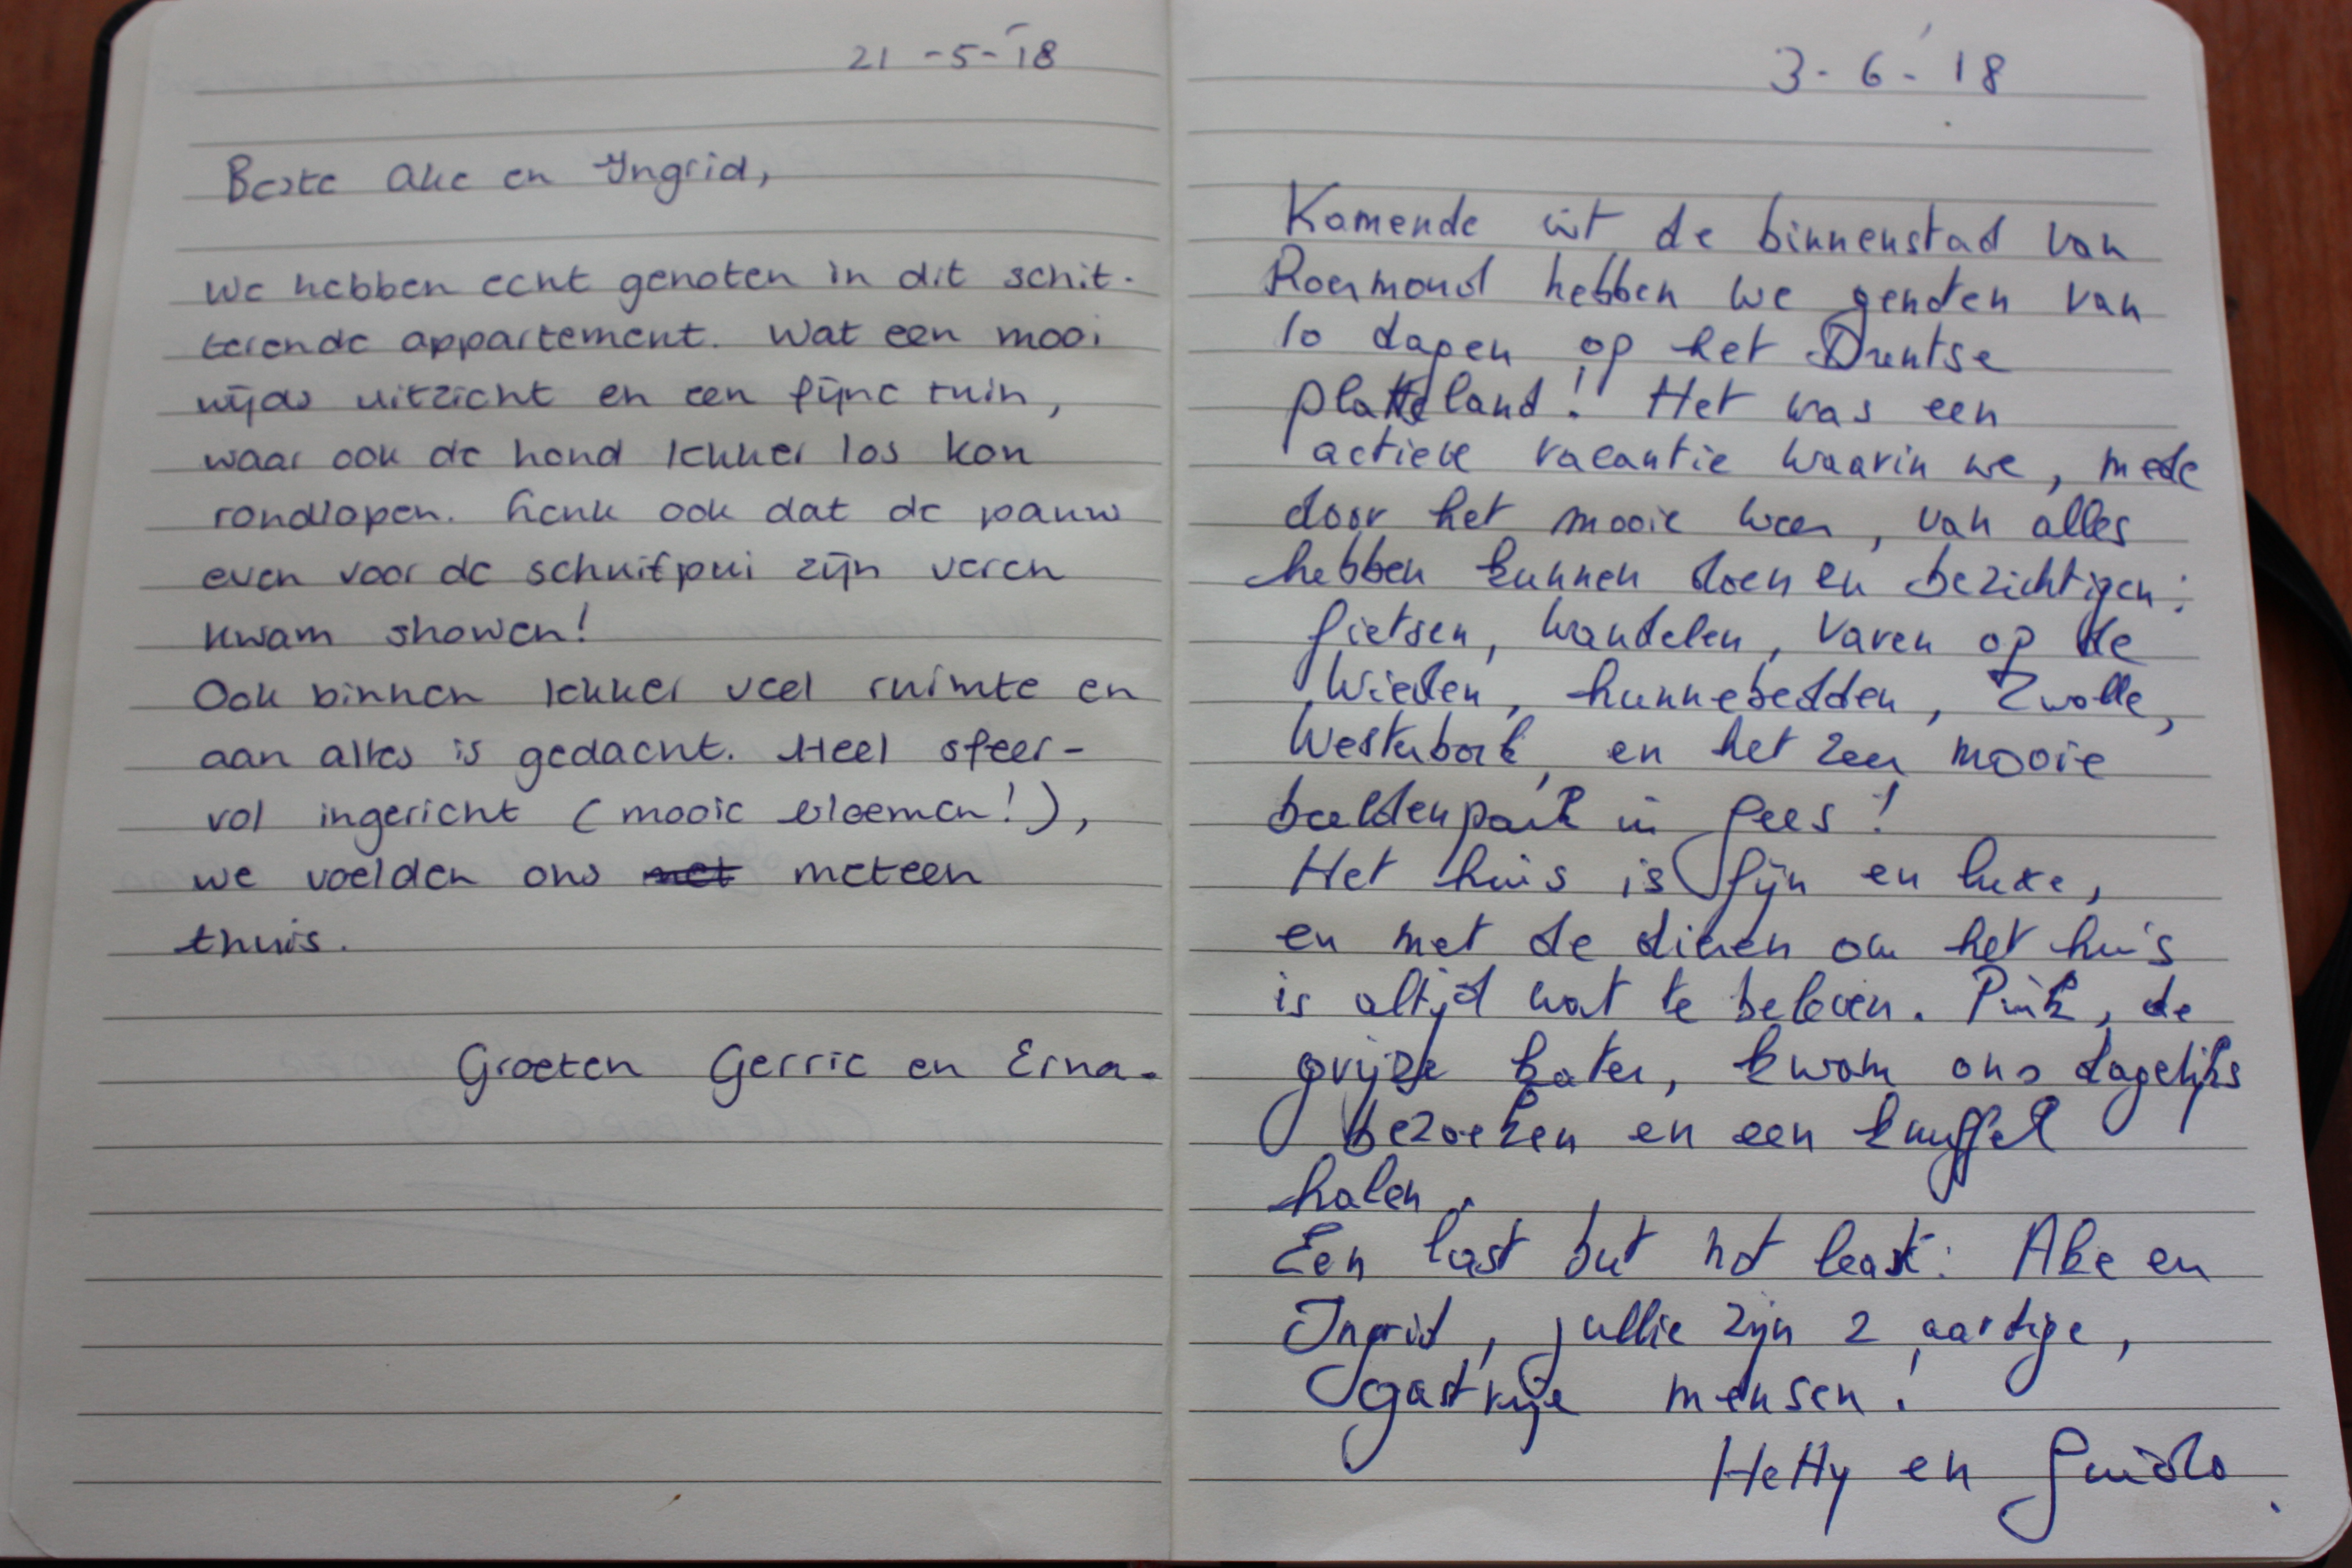 21-5-'18
Beste Ake en Ingrid,
We hebben echt genoten in dit schit-
terende appartement. Wat een mooi
wijds uitzicht en een fijne tuin,
waar ook de hond lekker los kon
rondlopen. Leuk ook dat de pauw
even voor de schuifpui zijn veren
kwam showen!
Ook binnen lekker veel ruimte en
aan alles is gedacht. Heel sfeer-
vol ingericht (mooie bloemen!),
we voelden ons met meteen
thuis.
Groeten Gerrie en Erna.
3-6-'18
Komende uit de binnenstad van
Roermond hebben we genoten van
10 dagen op het Drentse
platteland! Het was een
actieve vacantie waarin we, mede
door het mooie weer, van alles
hebben kunnen doen en bezichtigen:
fietsen, wandelen, varen op de
Wieden, hunnebedden, Zwolle,
Westerbork, en het zeer mooie
beeldenpark in Gees!
Het huis is fijn en luxe,
en met de dieren om het huis
is altijd wat te beleven. Puik, de
grijze kater, kwam ons dagelijks
bezoeken en een knuffel
halen.
Een last but not least: Ake en
Ingrid, jullie zijn 2 aardige,
gastvrije mensen!
Hetty en Guido.